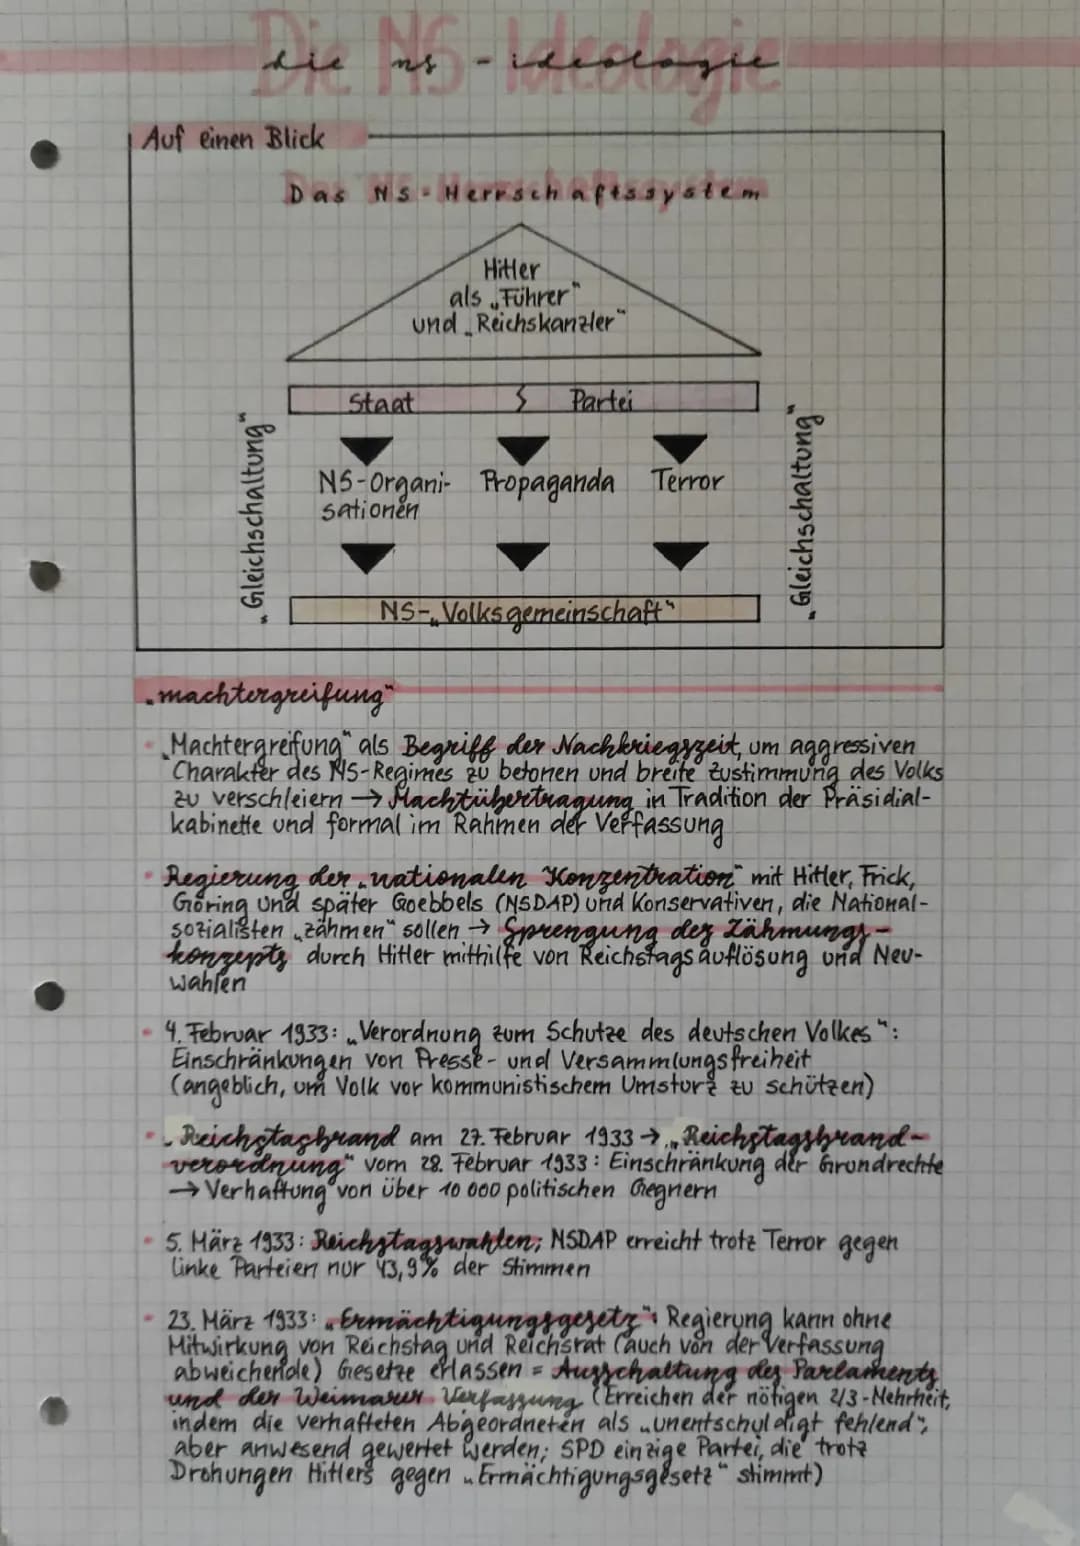 Die NS-Ideologie
die ns - ideologie
Auf einen Blick
Das NS-Herrschaftssystem
Hitler
als „Führer“
und „Reichskanzler“
Staat Partei
„Gleichschaltung“
NS-Organi-
sationen
Propaganda
Terror
„Gleichschaltung“
NS-„Volksgemeinschaft“
„machtergreifung“
„Machtergreifung“ als Begriff der Nachkriegszeit, um aggressiven
Charakter des NS-Regimes zu betonen und breite Zustimmung des Volks
zu verschleiern → Machtübertragung in Tradition der Präsidial-
kabinette und formal im Rahmen der Verfassung
Regierung der „nationalen Konzentration“ mit Hitler, Frick,
Göring und später Goebbels (NSDAP) und Konservativen, die National-
sozialisten „zähmen“ sollen → Sprengung des Zähmungs-
konzepts durch Hitler mithilfe von Reichstagsauflösung und Neu-
wahlen
4. Februar 1933: „Verordnung zum Schutze des deutschen Volkes“:
Einschränkungen von Presse- und Versammlungsfreiheit
(angeblich, um Volk vor kommunistischem Umsturz zu schützen)
Reichstagbrand am 27. Februar 1933 → „Reichstagsbrand-
verordnung“ vom 28. Februar 1933: Einschränkung der Grundrechte
→ Verhaftung von über 10 000 politischen Gegnern
5. März 1933: Reichstagswahlen; NSDAP erreicht trotz Terror gegen
linke Parteien nur 43,9% der Stimmen
23. März 1933: „Ermächtigungsgesetz“: Regierung kann ohne
Mitwirkung von Reichstag und Reichsrat (auch von der Verfassung
abweichende) Gesetze erlassen = Ausschaltung des Parlaments
und der Weimarer Verfassung (Erreichen der nötigen 2/3-Mehrheit,
indem die verhafteten Abgeordneten als „unentschuldigt fehlend“,
aber anwesend gewertet werden; SPD einzige Partei, die trotz
Drohungen Hitlers gegen „Ermächtigungsgesetz“ stimmt)